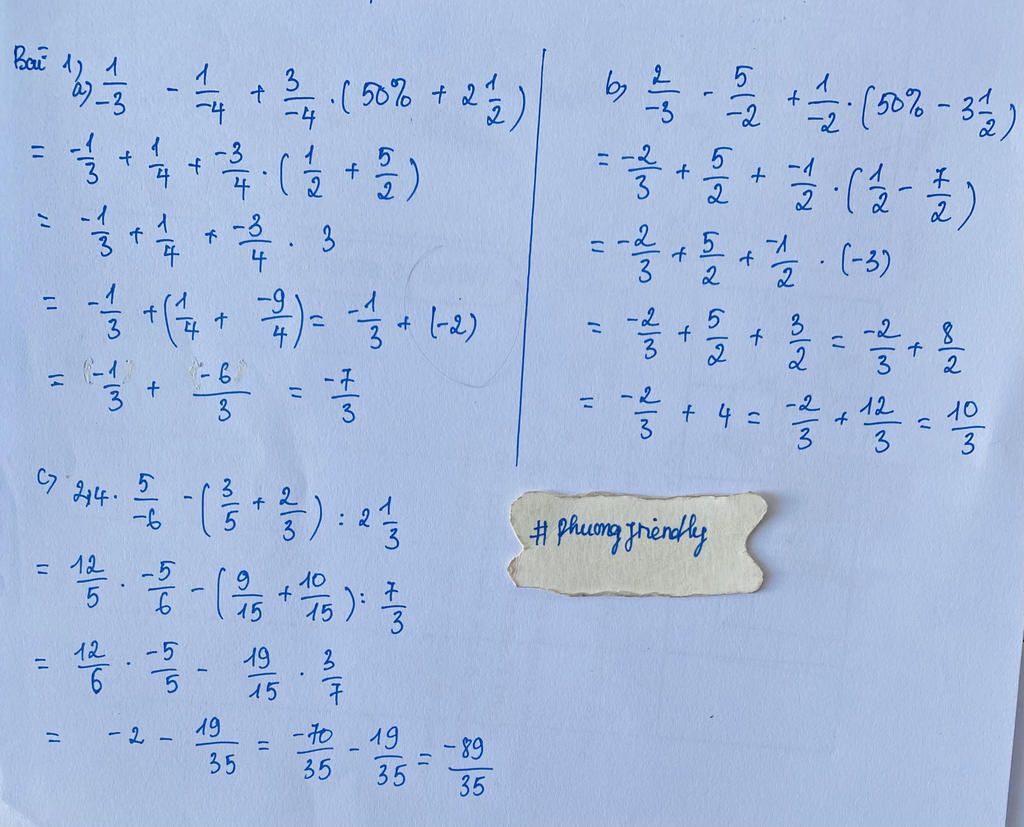 Bài 1)
a) 1/-3 - 1/-4 + 3/-4 . ( 50% + 2 1/2 )
= -1/3 + 1/4 + -3/4 . ( 1/2 + 5/2 )
= -1/3 + 1/4 + -3/4 . 3
= -1/3 + ( 1/4 + -9/4 ) = -1/3 + (-2)
= (-1)/3 + (-6)/3 = -7/3
b) 2/-3 - 5/-2 + 1/-2 . ( 50% - 3 1/2 )
= -2/3 + 5/2 + -1/2 . ( 1/2 - 7/2 )
= -2/3 + 5/2 + -1/2 . (-3)
= -2/3 + 5/2 + 3/2 = -2/3 + 8/2
= -2/3 + 4 = -2/3 + 12/3 = 10/3
c) 2,4 . 5/-6 - ( 3/5 + 2/3 ) : 2 1/3
= 12/5 . -5/6 - ( 9/15 + 10/15 ) : 7/3
= 12/6 . -5/5 - 19/15 . 3/7
= -2 - 19/35 = -70/35 - 19/35 = -89/35
# phuong friendly